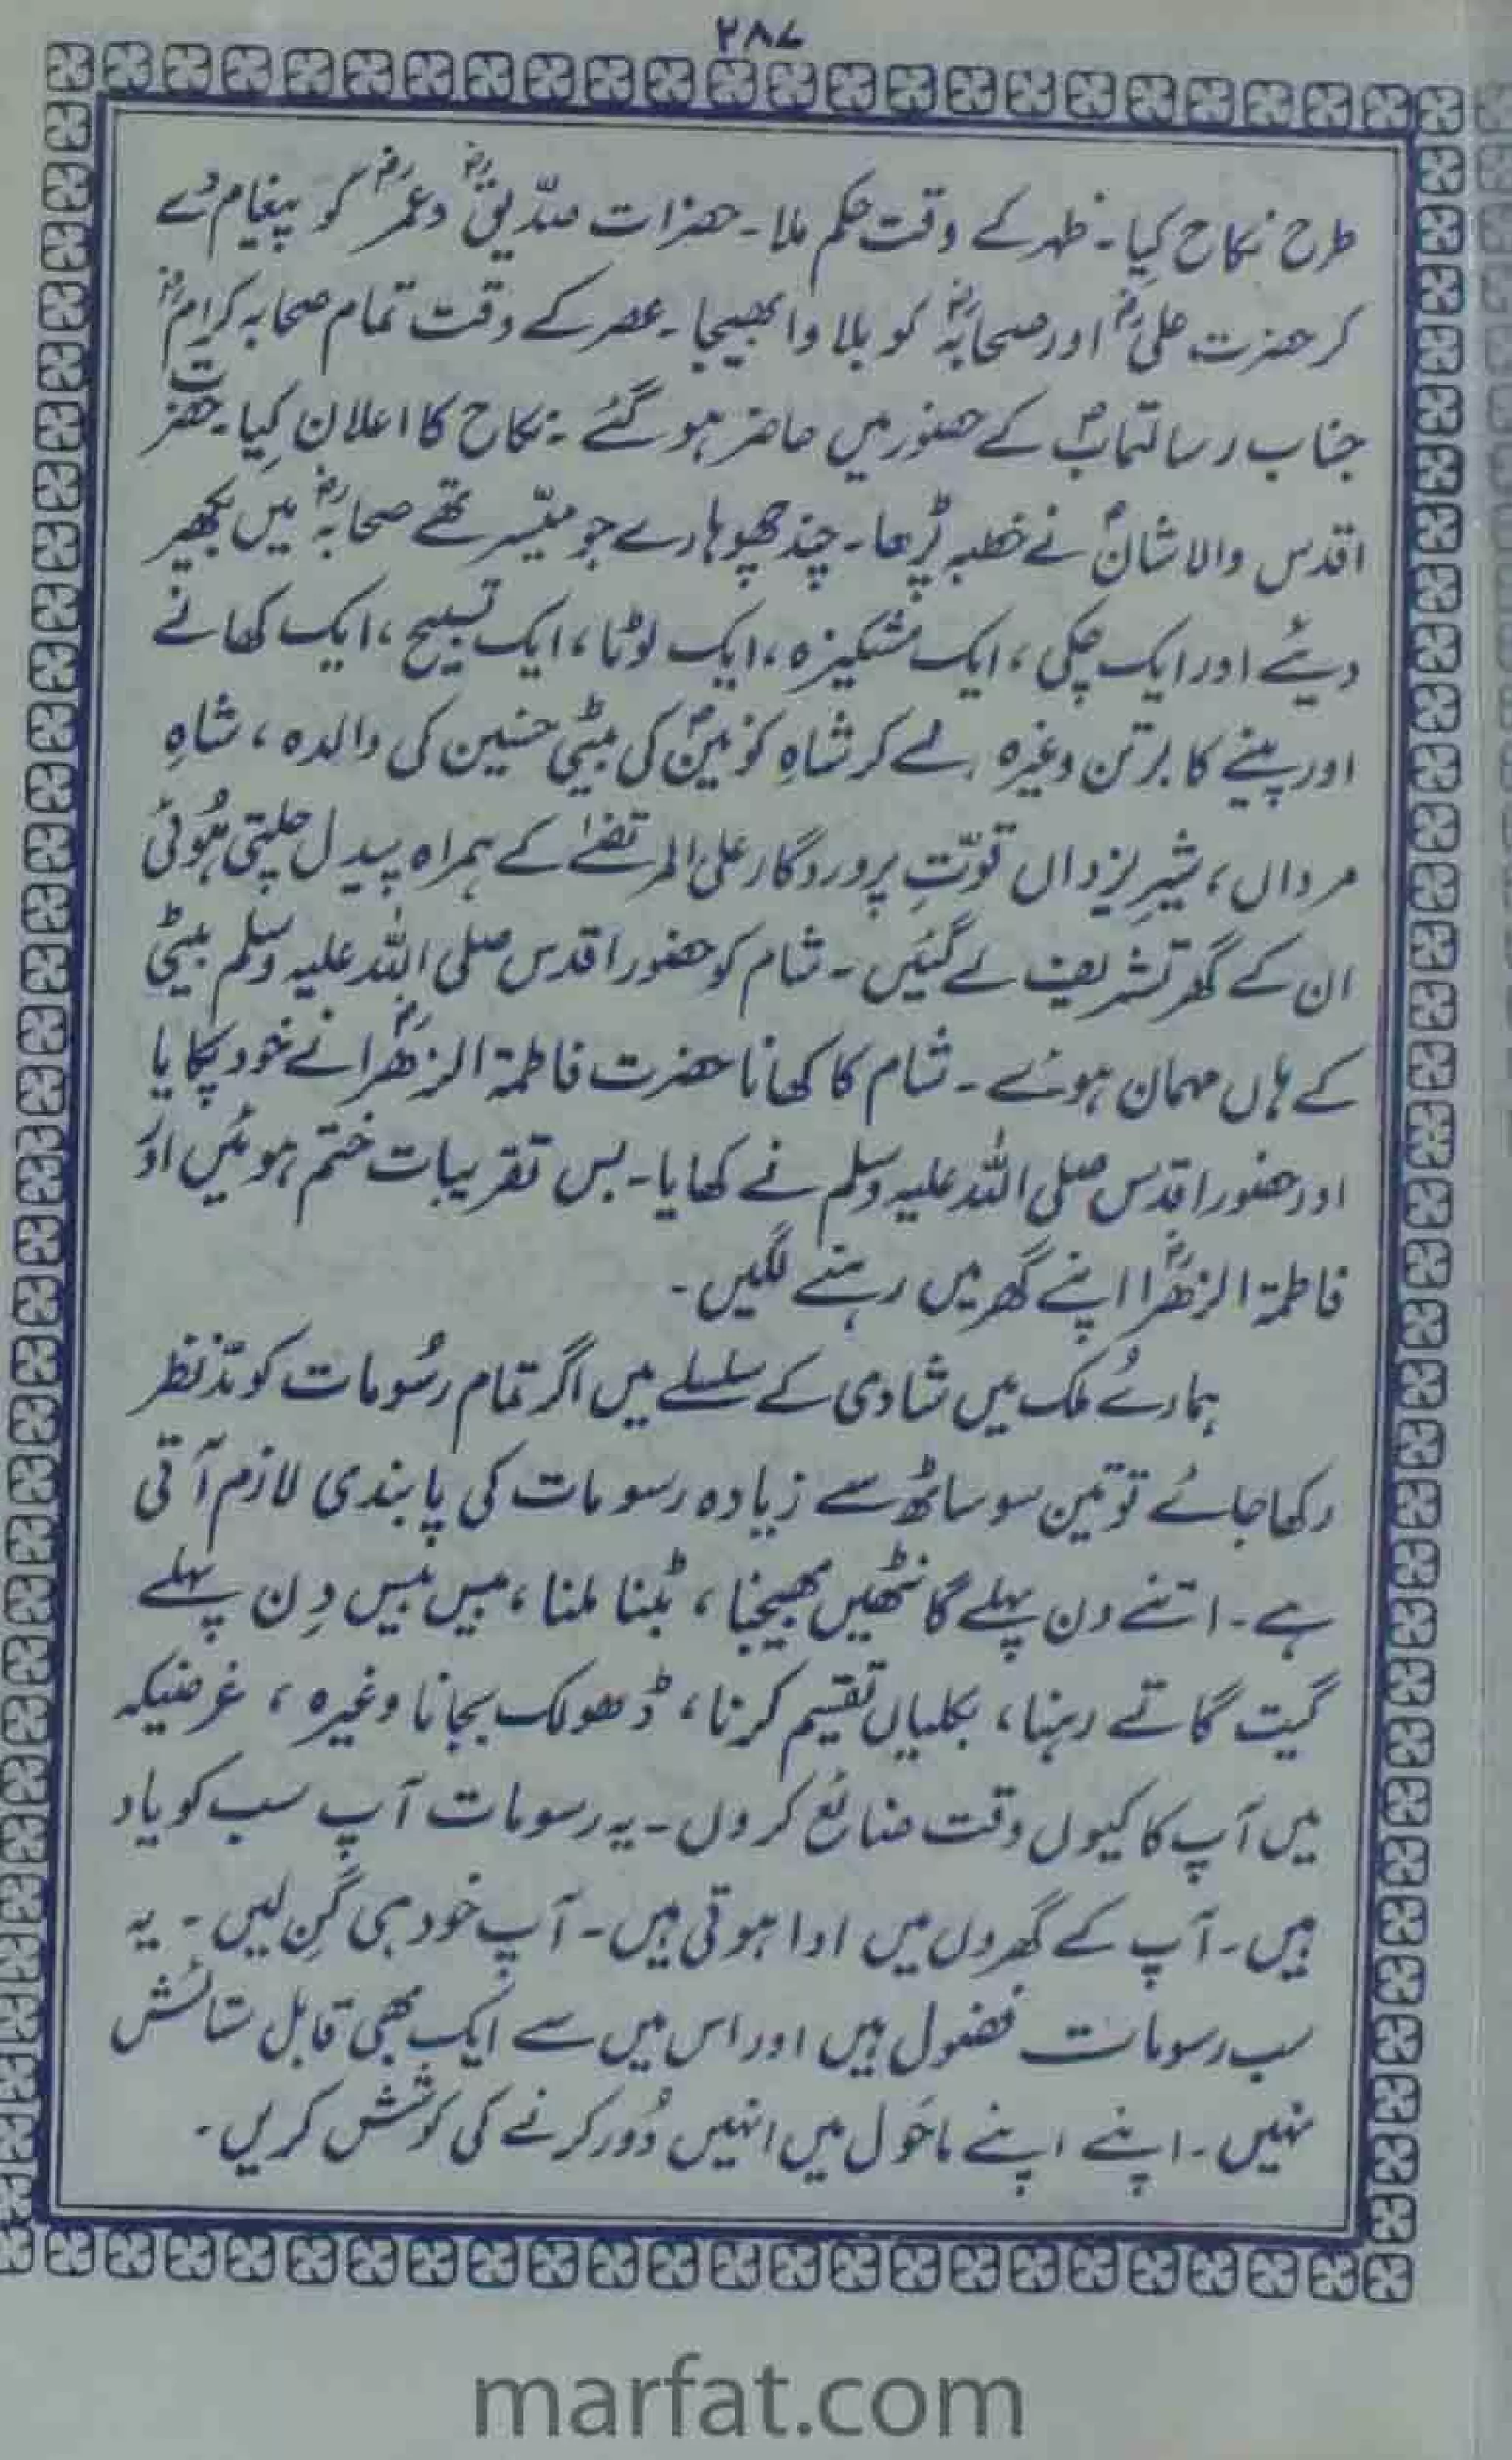 ۲۸۷
طرح نکاح کیا۔ ظہر کے وقت حکم ملا۔ حضرات صدّیقؓ وعمرؓ کو پیغام دے
کر حضرت علیؓ اور صحابہؓ کو بلاوا بھیجا۔ عصر کے وقت تمام صحابہ کرامؓ
جناب رسالتمابؐ کے حضور میں حاضر ہو گئے۔ نکاح کا اعلان کِیا۔ حضرت
اقدس والا شانؐ نے خطبہ پڑھا۔ چند چھوہارے جو میسّر تھے صحابہؓ میں بکھیر
دیئے اور ایک چکی، ایک مشکیزہ، ایک لوٹا، ایک تسبیح، ایک کھانے
اور پینے کا برتن وغیرہ لے کر شاہِ کونینؐ کی بیٹی حسنین کی والدہ، شاہِ
مرداں، شیرِ یزداں قوّتِ پروردگار علی المرتضےٰ کے ہمراہ پیدل چلتی ہُوئی
ان کے گھر تشریف لے گئیں۔ شام کو حضور اقدس صلی اللہ علیہ وسلم بیٹی
کے ہاں مہمان ہوئے۔ شام کا کھانا حضرت فاطمۃ الزھراؓ نے خود پکایا
اور حضور اقدس صلی اللہ علیہ وسلم نے کھایا۔ بس تقریبات ختم ہوئیں اور
فاطمۃ الزھراؓ اپنے گھر میں رہنے لگیں۔
ہمارے مُلک میں شادی کے سلسلے میں اگر تمام رسُومات کو مدّنظر
رکھا جائے تو تین سو ساٹھ سے زیادہ رسومات کی پابندی لازم آتی
ہے۔ اتنے دن پہلے گانٹھیں بھیجنا، بٹنا ملنا، بیس بیس دِن پہلے
گیت گاتے رہنا، بکلیاں تقسیم کرنا، ڈھولک بجانا وغیرہ، غرضیکہ
میں آپ کا کیوں وقت ضائع کروں۔ یہ رسومات آپ سب کو یاد
ہیں۔ آپ کے گھروں میں ادا ہوتی ہیں۔ آپ خود ہی گِن لیں۔ یہ
سب رسومات فضول ہیں اور اس میں سے ایک بھی قابل ستائش
نہیں۔ اپنے اپنے ماحول میں انہیں دُور کرنے کی کوشش کریں۔
marfat.com